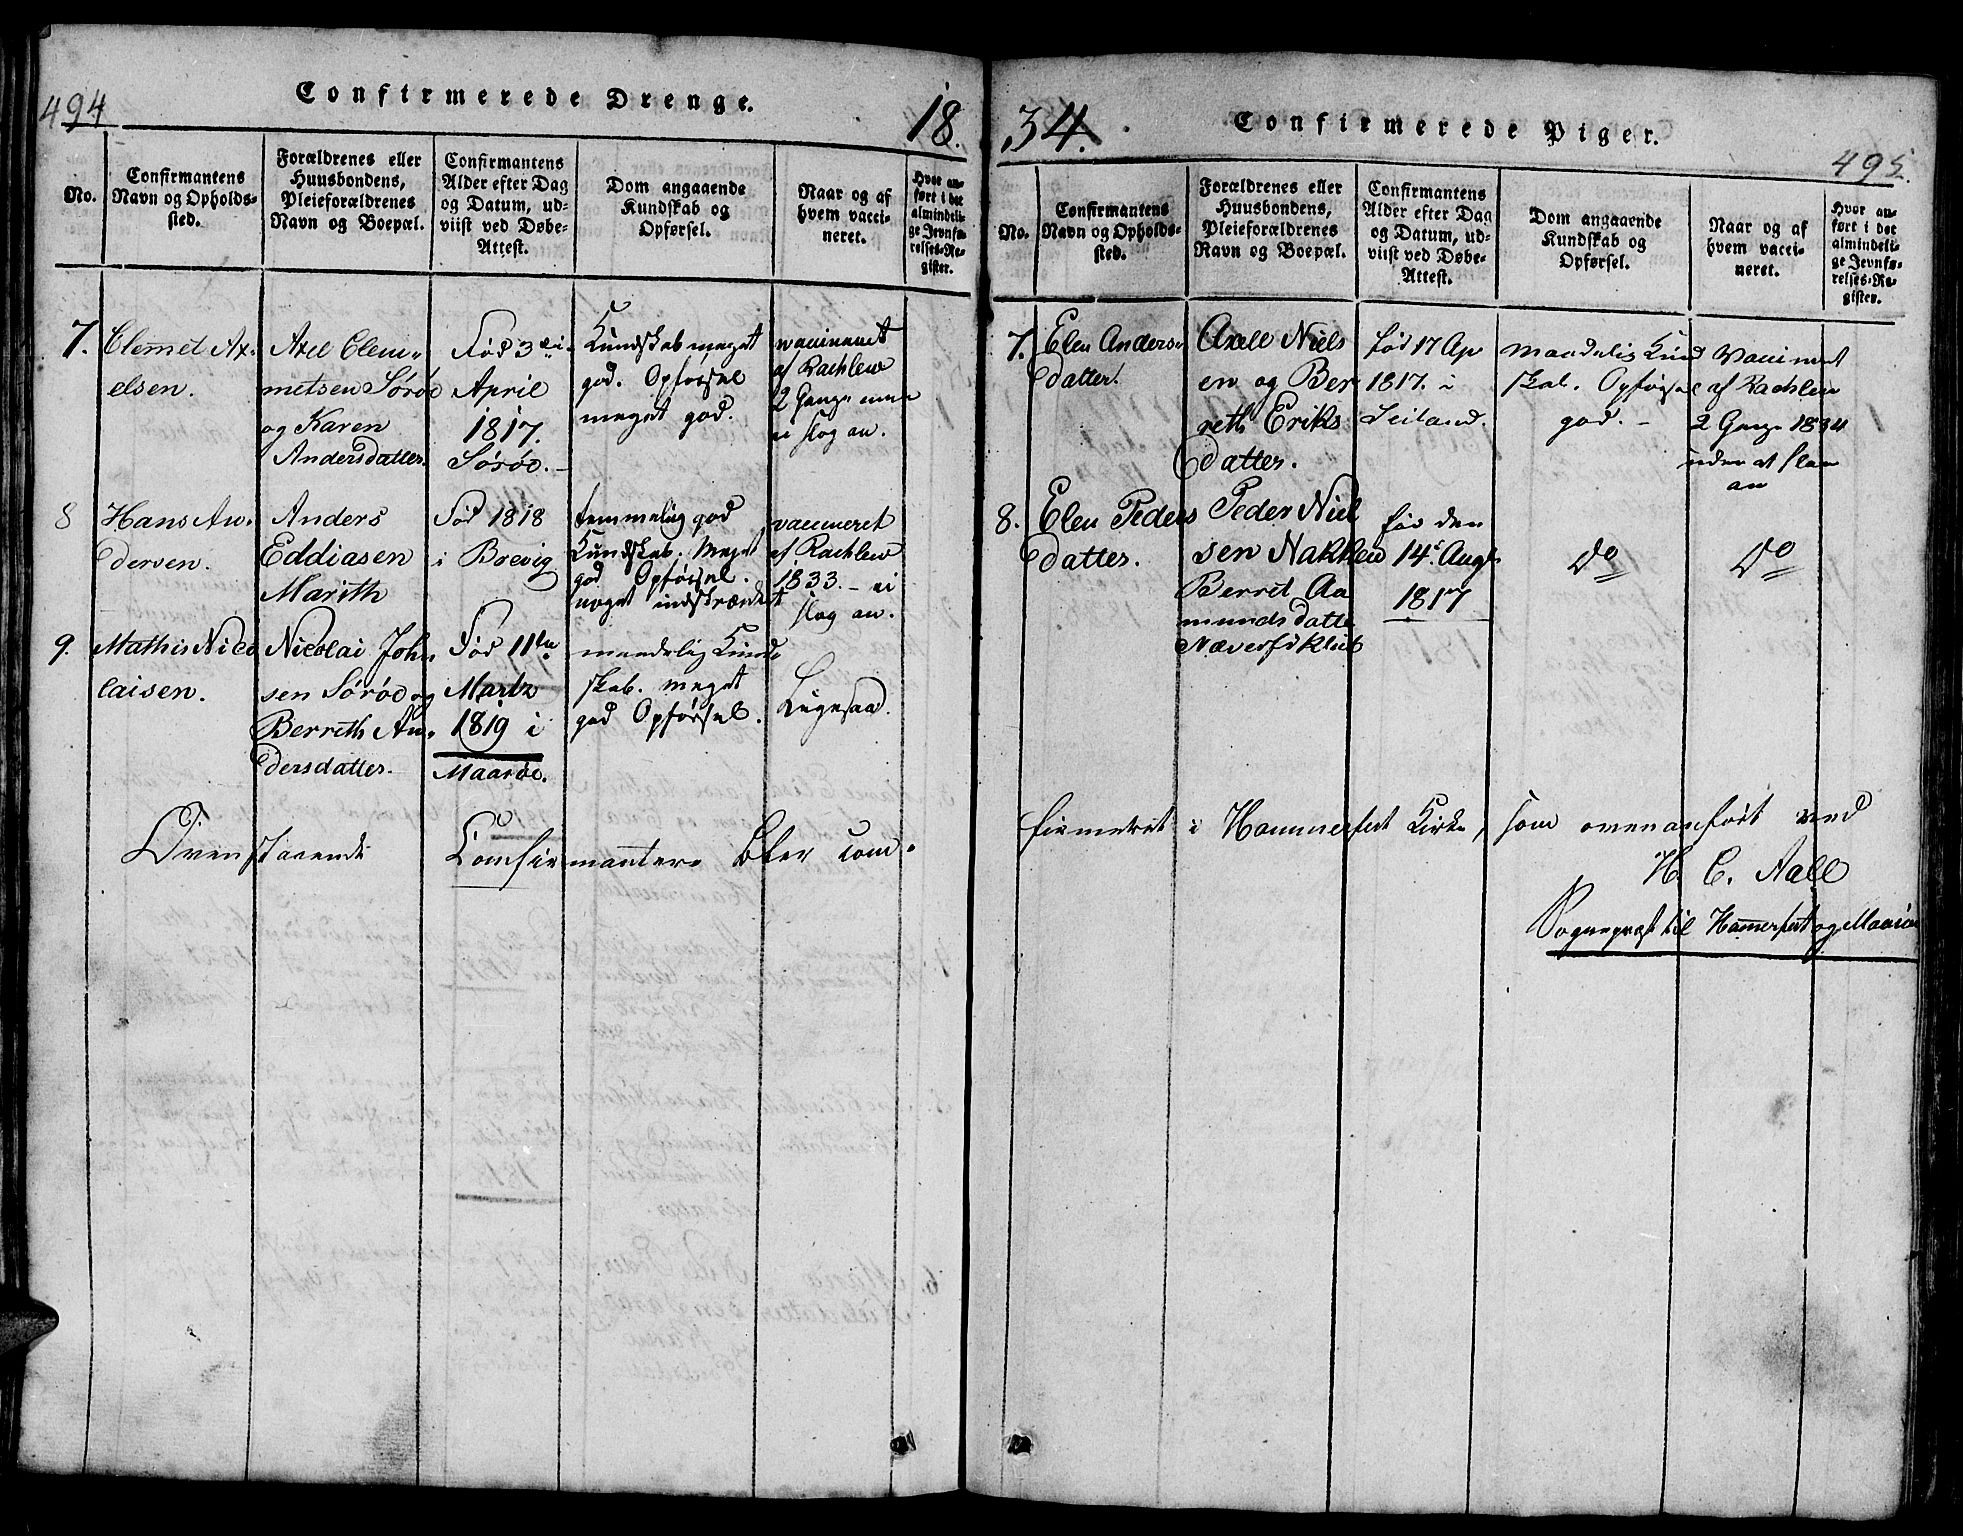 494
Confirmerede Drenge.
18.
No.
Confirmantens
Navn og Opholds-
sted.
Forældrenes eller
Huusbondens,
Pleieforældrenes
Navn og Boepæl.
Confirmantens
Alder efter Dag
og Datum, ud-
viist ved Døbe-
Attest.
Dom angaaende
Kundskab og
Opførsel.
Naar og af
hvem vacci-
neret.
Hvor an-
ført i det
almindeli-
ge Jevnfø-
relses-Re-
gister.
7.
Clemet Ax-
elsen.
Axel Clem-
metsen Sørøe
og Karen
Andersdatter.
Fød 3die
April
1817.
Sørøe.
Kundskab meget
god. Opførsel
meget god.
vaccineret
af Rachlew
2 Gange men
ei slog an.
8
Hans An-
dersen.
Anders
Eddiasen
Marith
Fød 1818
i Brevig
temmelig god
Kundskab. Meget
god Opførsel.
noget indskrænket
vaccineret
af Rachlew
1833. - ei
slog an.
9.
Mathis Nico
laisen.
Nicolai Joh-
sen Sørøe og
Berreth An-
dersdatter.
Fød 11te
Martz
1819 i
Maasøe.
maadelig Kund-
skab. meget
god Opførsel.
Ligesaa.
Ovenstaaende Confirmanter blev con-
34.
Confirmerede Piger.
495.
No.
Confirmantens
Navn og Opholds-
sted.
Forældrenes eller
Huusbondens,
Pleieforældrenes
Navn og Boepæl.
Confirmantens
Alder efter Dag
og Datum, ud-
viist ved Døbe-
Attest.
Dom angaaende
Kundskab og
Opførsel.
Naar og af
hvem vacci-
neret.
Hvor an-
ført i det
almindeli-
ge Jevnfø-
relses-Re-
gister.
7.
Elen Anders-
datter.
Axell Niels
en og Ber
reth Eriks
datter.
fød 17 Ap
1817. i
Seiland.
maadelig Kund
skab. Opførsel
god. -
Vaccineret
af Rachlew
2 Gange 1834
uden at slaae
an
8.
Elen Peders
datter.
Peder Niel
sen Nakken
Berret Aa
munds datter
Næverfiklub
fød den
14de Augt
1817
Do
Do
firmeret i Hammerfest Kirke, som ovenanført ved
H. C. Aall
Sognepræst til Hamerfest og Maasøe